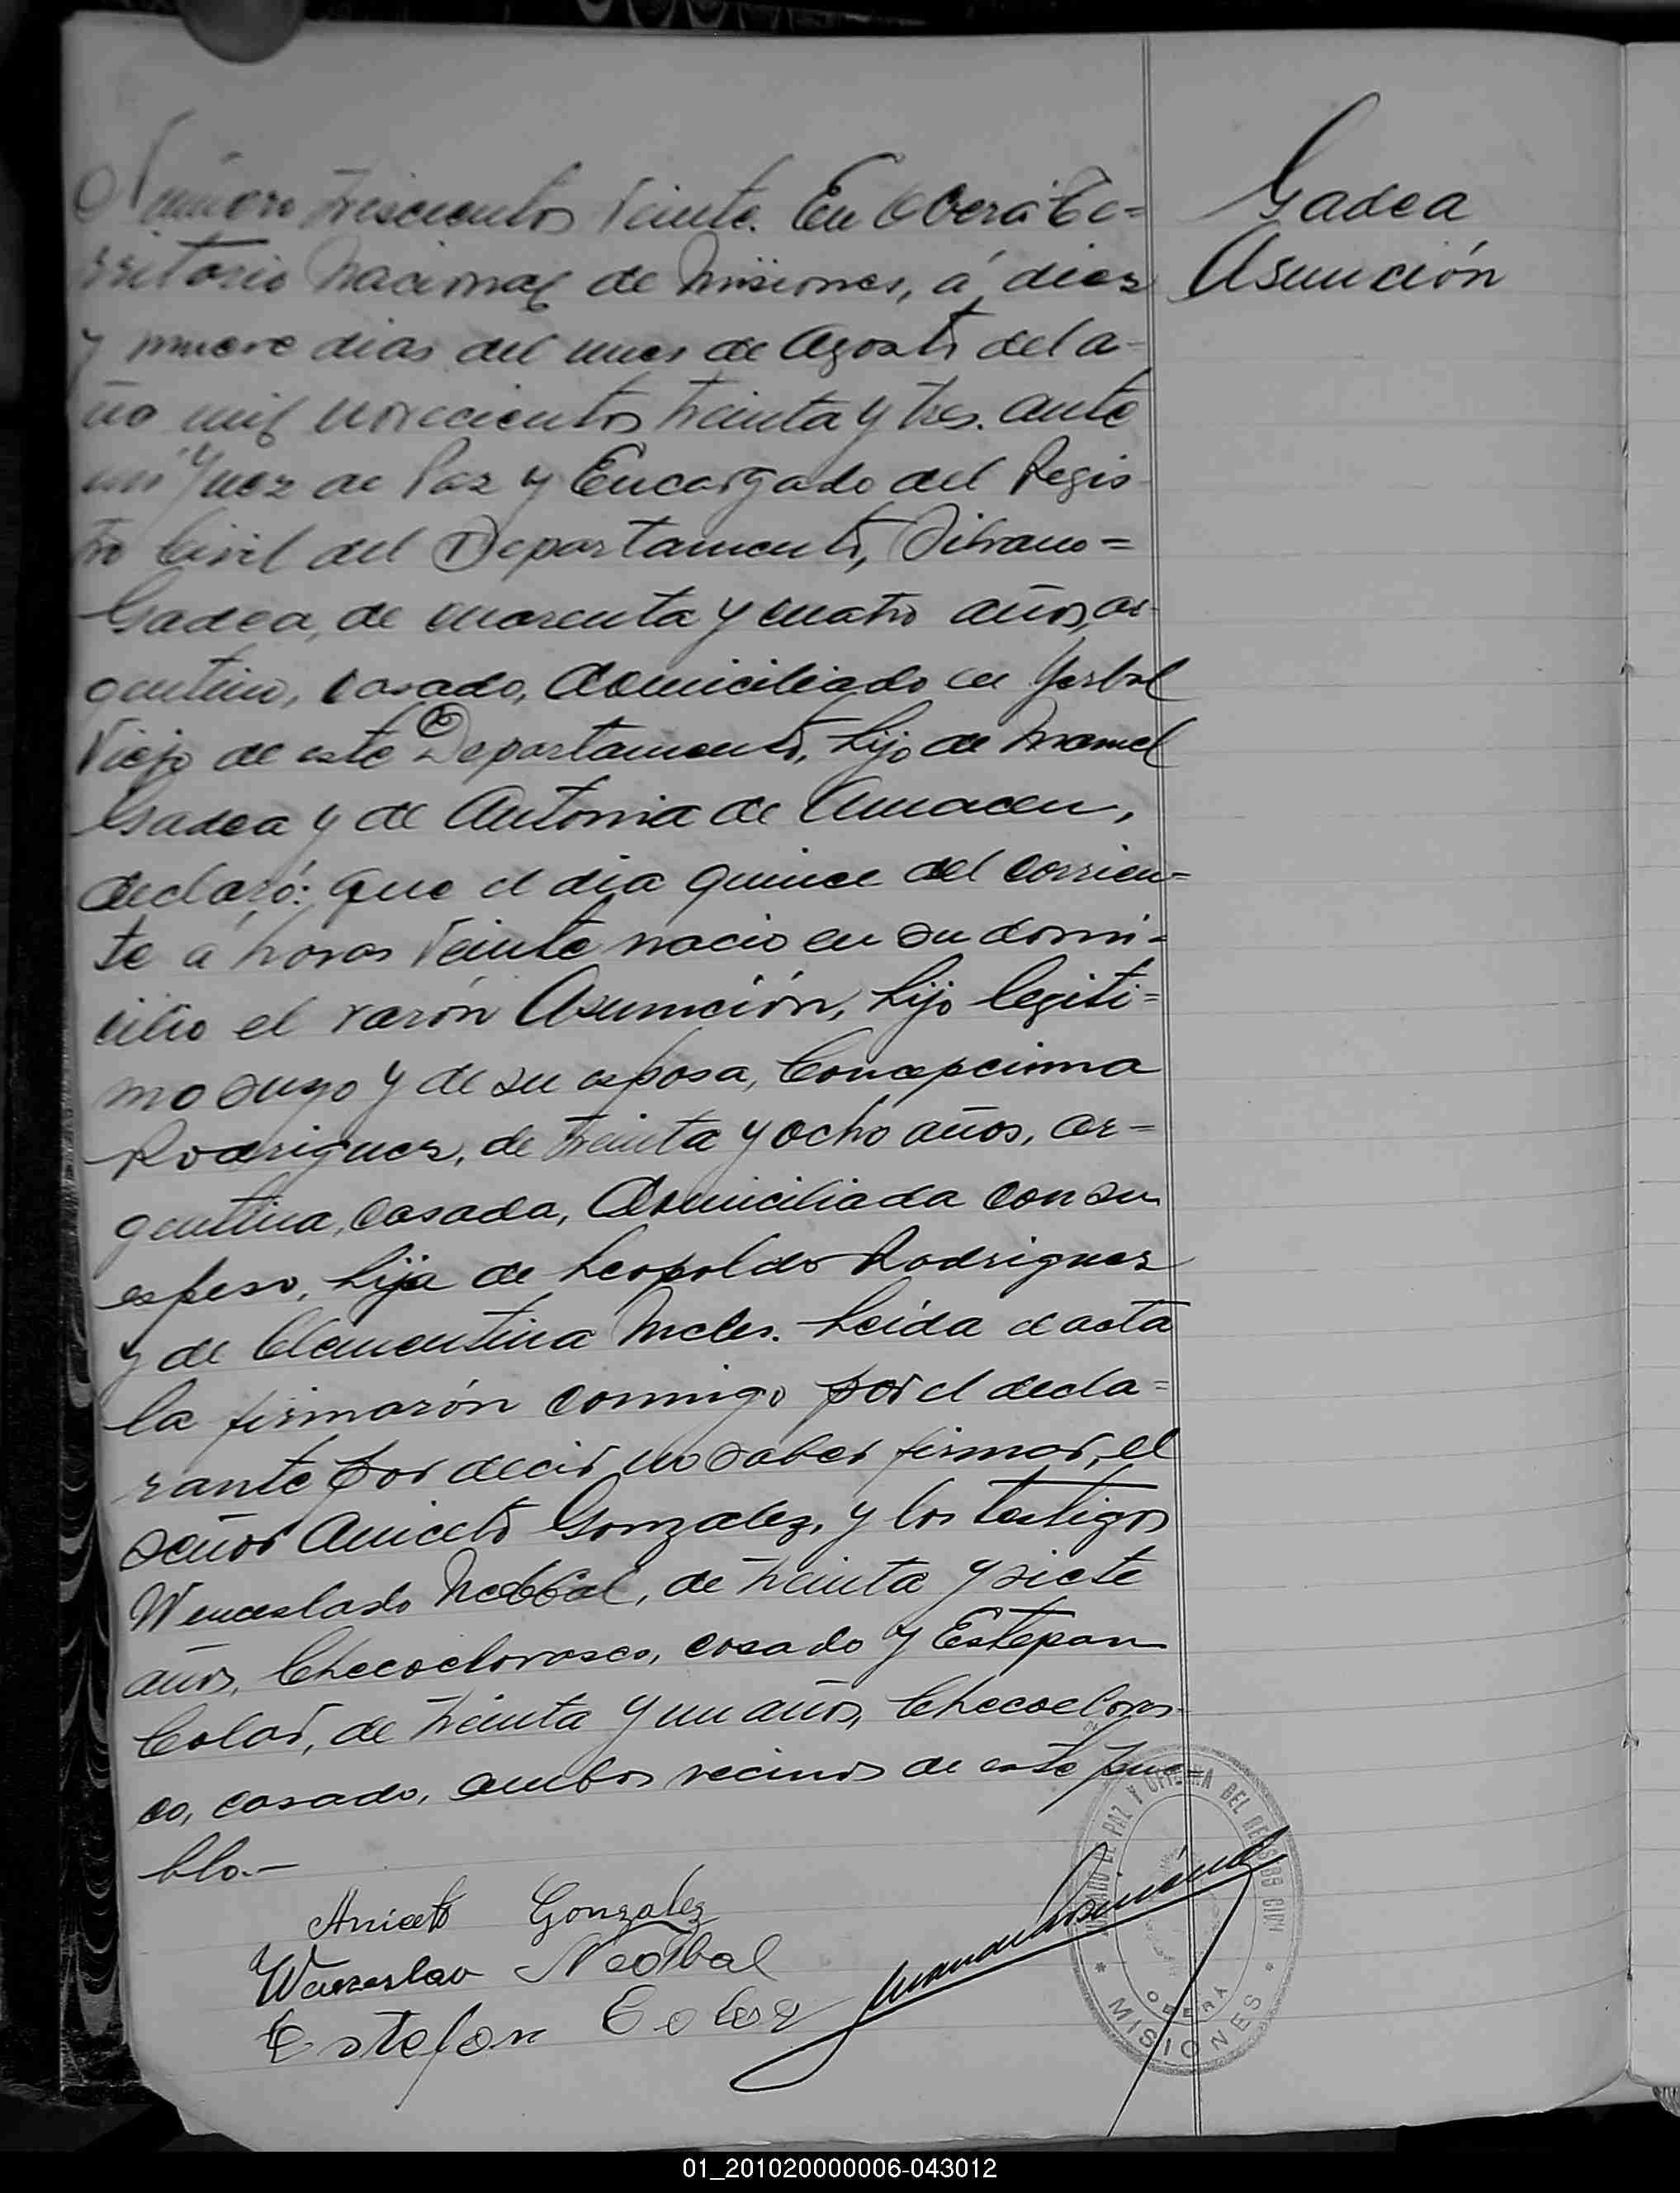 Gadea
Asunción
Número trescientos veinte. En Oberá Te=
rritorio Nacional de Misiones, á diez
y nueve dias del mes de Agosto del a-
ño mil novecientos treinta y tres. ante
mi Juez de Paz y Encargado del Regis-
tro Civil del Departamento,
Gadea, de cuarenta y cuatro años, ar-
gentino, casado, domiciliado en Yerbal
Viejo de este Departamento, hijo de Manuel
Gadea y de Antonia de
declaró: que el dia quince del corrien=
te a horas veinte nacio en su domi-
cilio el varón Asunción, hijo legiti=
mo suyo y de su esposa, Concepciona
Rodriguez, de treinta y ocho años, ar=
gentina, casada, domiciliada con su
esposo, hija de Leopoldo Rodriguez
y de Clementina Meles. Leida el acta
la firmarón conmigo por el decla=
rante por decir no saber firmar, el
señor Aniceto Gonzalez, y los testigos
Wenceslado Nedbal, de treinta y siete
años, Checoeslovaco, casado y Estepan
Colar, de treinta y un años, Checoeslova-
co, casado, ambos vecinos de este pue=
blo.-
Aniceto Gonzalez
Nedbal
Estefan
JUZGADO DE PAZ Y OFICINA DEL REGISTRO CIVIL
OBERÁ
* MISIONES *
01_201020000006-043012